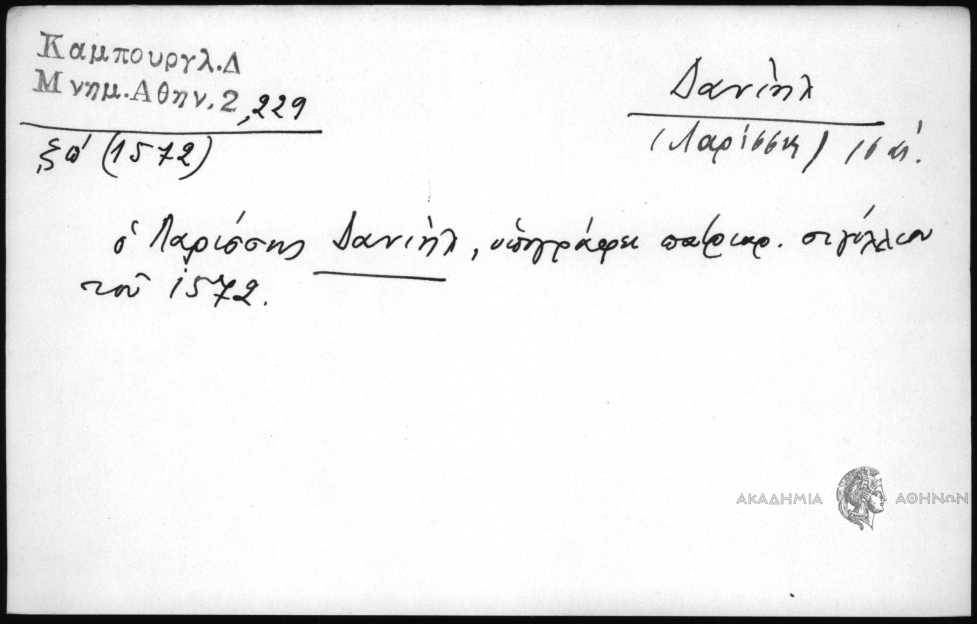 Καμπουργλ.Δ
Μνημ.Αθην.2,229
(1572)
Δανιὴλ
(Λαρίσσης) 16 αἰ.
ὁ Λαρίσσης Δανιὴλ, ὑπογράφει πατριαρ. σιγίλλιον
τοῦ 1572.
ΑΚΑΔΗΜΙΑ ΑΘΗΝΩΝ